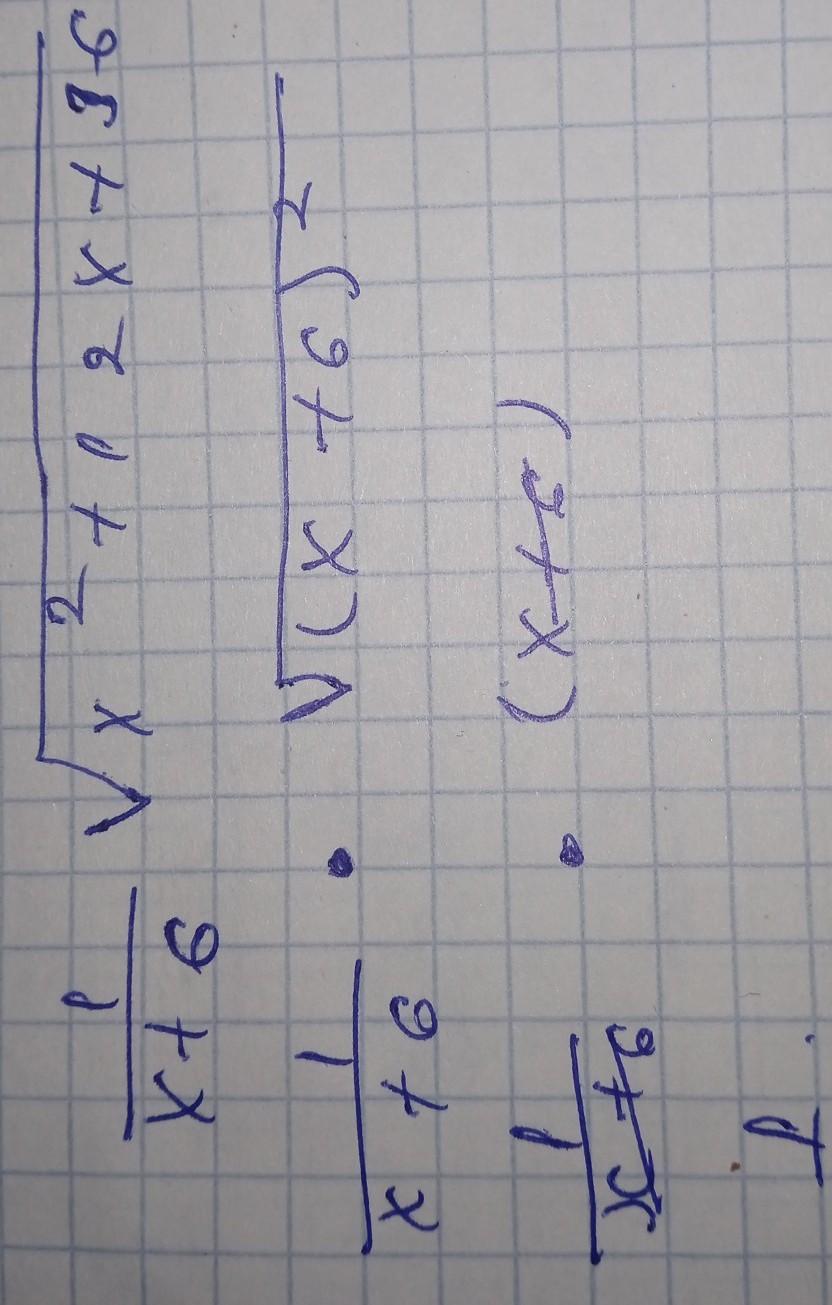 1/(x+6) √(x²+12x+36)
1/(x+6) · √((x+6)²)
1/(x+6) · (x+6)
1